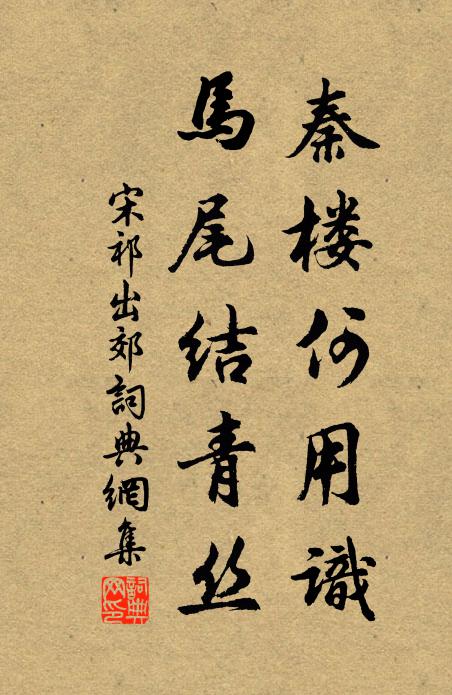 秦楼何用識
馬尾結青丝
宋祁出郊詞典網集
詞典网印